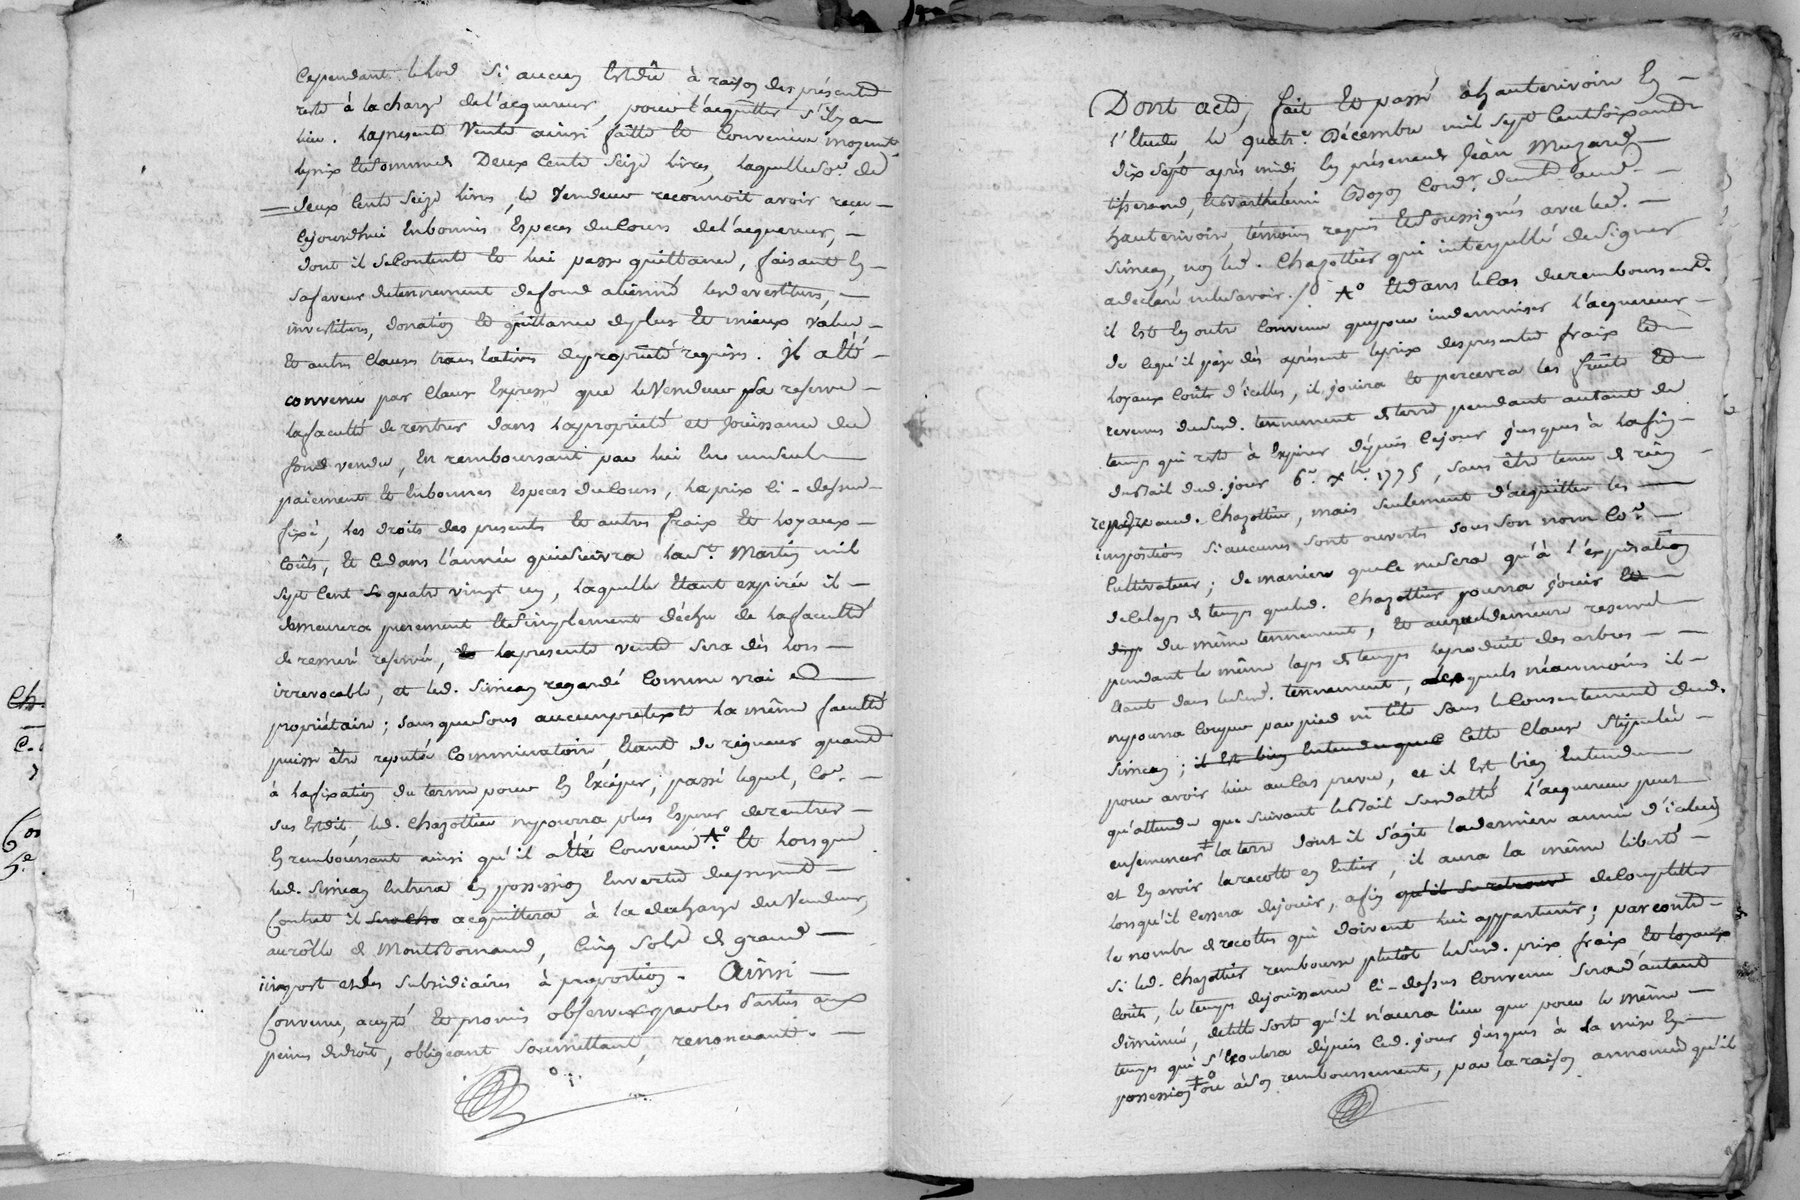 Cependant le lod si aucun est dû à raison des présentes
reste à la charge de l'acquereur, pour l'acquitter s'il y a
lieu. La presente vente ainsi faitte et convenue moyent.
le prix et somme de Deux cents seize livres, laquelle so.e de
deux cents seize livres, le vendeur reconnoit avoir reçu
cejourdhui en bonnes Especes du cours de l'acquereur,
dont il se contente et lui passe quittance, faisant en
sa faveur du tennement de fond aliené les devestiture,
investiture, donation et quittance de plus et mieux value
et autres clauses translatives de propriété requises. Il a été
convenu par clause Expresse que le Vendeur se reserve
la faculté de rentrer dans la propriété et jouissance du
fond vendu, en remboursant par lui en un seul
paiement et en bonnes especes du cours, le prix ci-dessus
fixé, les droits des presentes et autres fraix et loyaux
coûts, et ce dans l'année qui suivra la S.t Martin mil
sept cent quatre vingt un, laquelle étant expirée il
demeurera purement et simplement déchu de la faculté
de remeré reservée, la presente vente sera dès lors
irrevocable, et led. Simean regardé comme vrai
propriétaire; sans que sous aucun pretexte la même faculté
puisse être reputée comminatoire, étant de rigueur quand
à la fixation du terme pour en Exciper, passé lequel, co.e
sus est dit, led. Chazottier ne pourra plus Esperer de rentrer
en remboursant ainsi qu'il a été convenu A° Et lorsque
led. Simean entrera en possession en vertu du present
Contrat il sera acquittera à la decharge du Vendeur,
au rôlle de Montbornand, cinq sols de grand
import et des subsidiaires à proportion. Ainsi
Convenu, accepté et promis observer par les Parties aux
peines de droit, obligeant soumettant, renonceant.
Dont acte, fait et passé à hauterivoire En
l'Etude, le quatr.e Décembre mil sept cent soixante
dix sept après midi, En présence de Jean Muzard
tisserand, et Barthelemi
hauterivoire, témoins requis et soussignés avec led.
Simean, non led. Chazottier qui interpellé de signer
a declaré ne le savoir./. A° Et dans le cas du remboursement
il est en outre convenu que pour indemniser l'acquereur
de ce qu'il paye dès apresent le prix des presentes fraix et
loyaux coûts d'icelles, il jouira et percevra les fruits et
revenus du susd. tennement de terre pendant autant de
temps qui reste à Expirer depuis cejour jusques à la fin
du Bail dud. jour 6.e x.bre 1775, sans être tenu de rien
rendre aud. Chazottier, mais seulement d'acquitter les
impositions si aucunes sont ouvertes sous son nom co.e
Cultivateur; de maniere que ce ne sera qu'à l'expiration
de ce laps de temps que led. Chazottier pourra jouir et
du même tennement, et aura demeure reservé
pendant le même laps de temps le produit des arbres
étant dans le susd. tennement, desquels néanmoins il
ne pourra couper par pied ni tête sans le consentement dud.
Simean; il est bien entendu que cette clause stipulée
pour avoir lieu au cas prevu, et il est bien Entendu
qu'attendu que suivant le Bail susdatté l'acquereur peut
ensemencer la terre dont il s'agit la derniere année d'icelui
et En avoir la recolte en Entier, il aura la même liberté
lorsqu'il cessera de jouir, afin qu'il se retrouve de completter
le nombre de recoltes qui doivent lui appartenir; par contre
si led. Chazottier rembourse plutôt lesusd. prix fraix et loyaux
coûts, le temps de jouissance ci-dessus convenu sera d'autant
diminué, de telle sorte qu'il n'aura lieu que pour le même
temps qui s'Ecoulera depuis led. jour jusques à la mise En
possession ou à son remboursement, par la raison annoncée qu'il